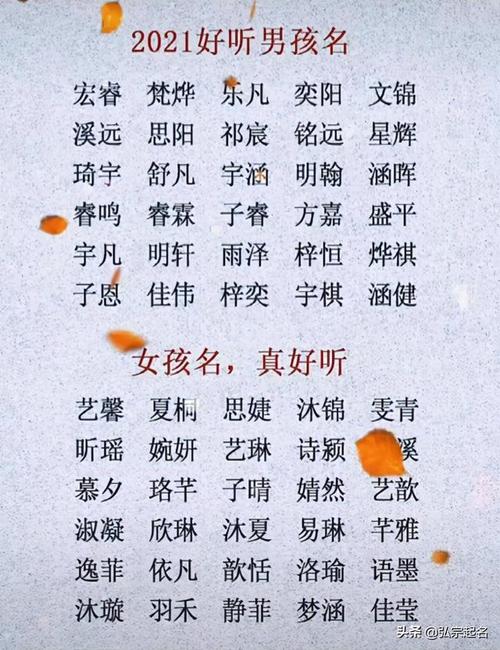 2021好听男孩名
宏睿 梵烨 乐凡 奕阳 文锦
溪远 思阳 祁宸 铭远 星辉
琦宇 舒凡 宇涵 明翰 涵晖
睿鸣 睿霖 子睿 方嘉 盛平
宇凡 明轩 雨泽 梓恒 烨祺
子恩 佳伟 梓奕 宇棋 涵健
女孩名，真好听
艺馨 夏桐 思婕 沐锦 雯青
昕瑶 婉妍 艺琳 诗颍 溪
慕夕 珞芊 子晴 婧然 艺歆
淑凝 欣琳 沐夏 易琳 芊雅
逸菲 依凡 歆恬 洛瑜 语墨
沐璇 羽禾 静菲 梦涵 佳莹
头条 @弘宗起名